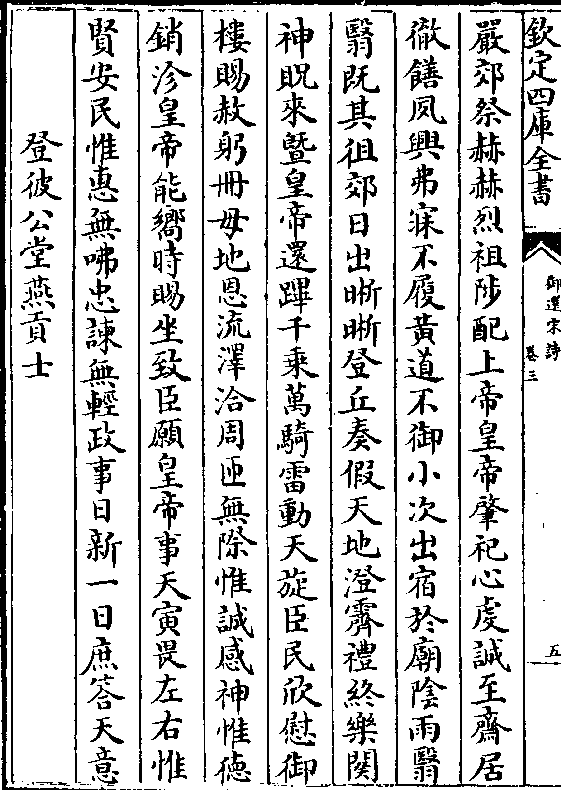 欽定四庫全書
御選宋詩
卷三
五
嚴郊祭赫赫烈祖陟配上帝皇帝肇祀心虔誠至齋居
徹饍夙興弗寐不履黄道不御小次出宿於廟陰雨翳
翳既其徂郊日出晰晰登丘奏假天地澄霽禮終樂闋
神貺來暨皇帝還蹕千乘萬騎雷動天旋臣民欣慰御
樓賜赦躬冊母地恩流澤洽周匝無際惟誠感神惟德
銷沴皇帝能嚮時賜坐致臣願皇帝事天寅畏左右惟
賢安民惟惠無咈忠諫無輕政事日新一日庶答天意
登彼公堂燕貢士